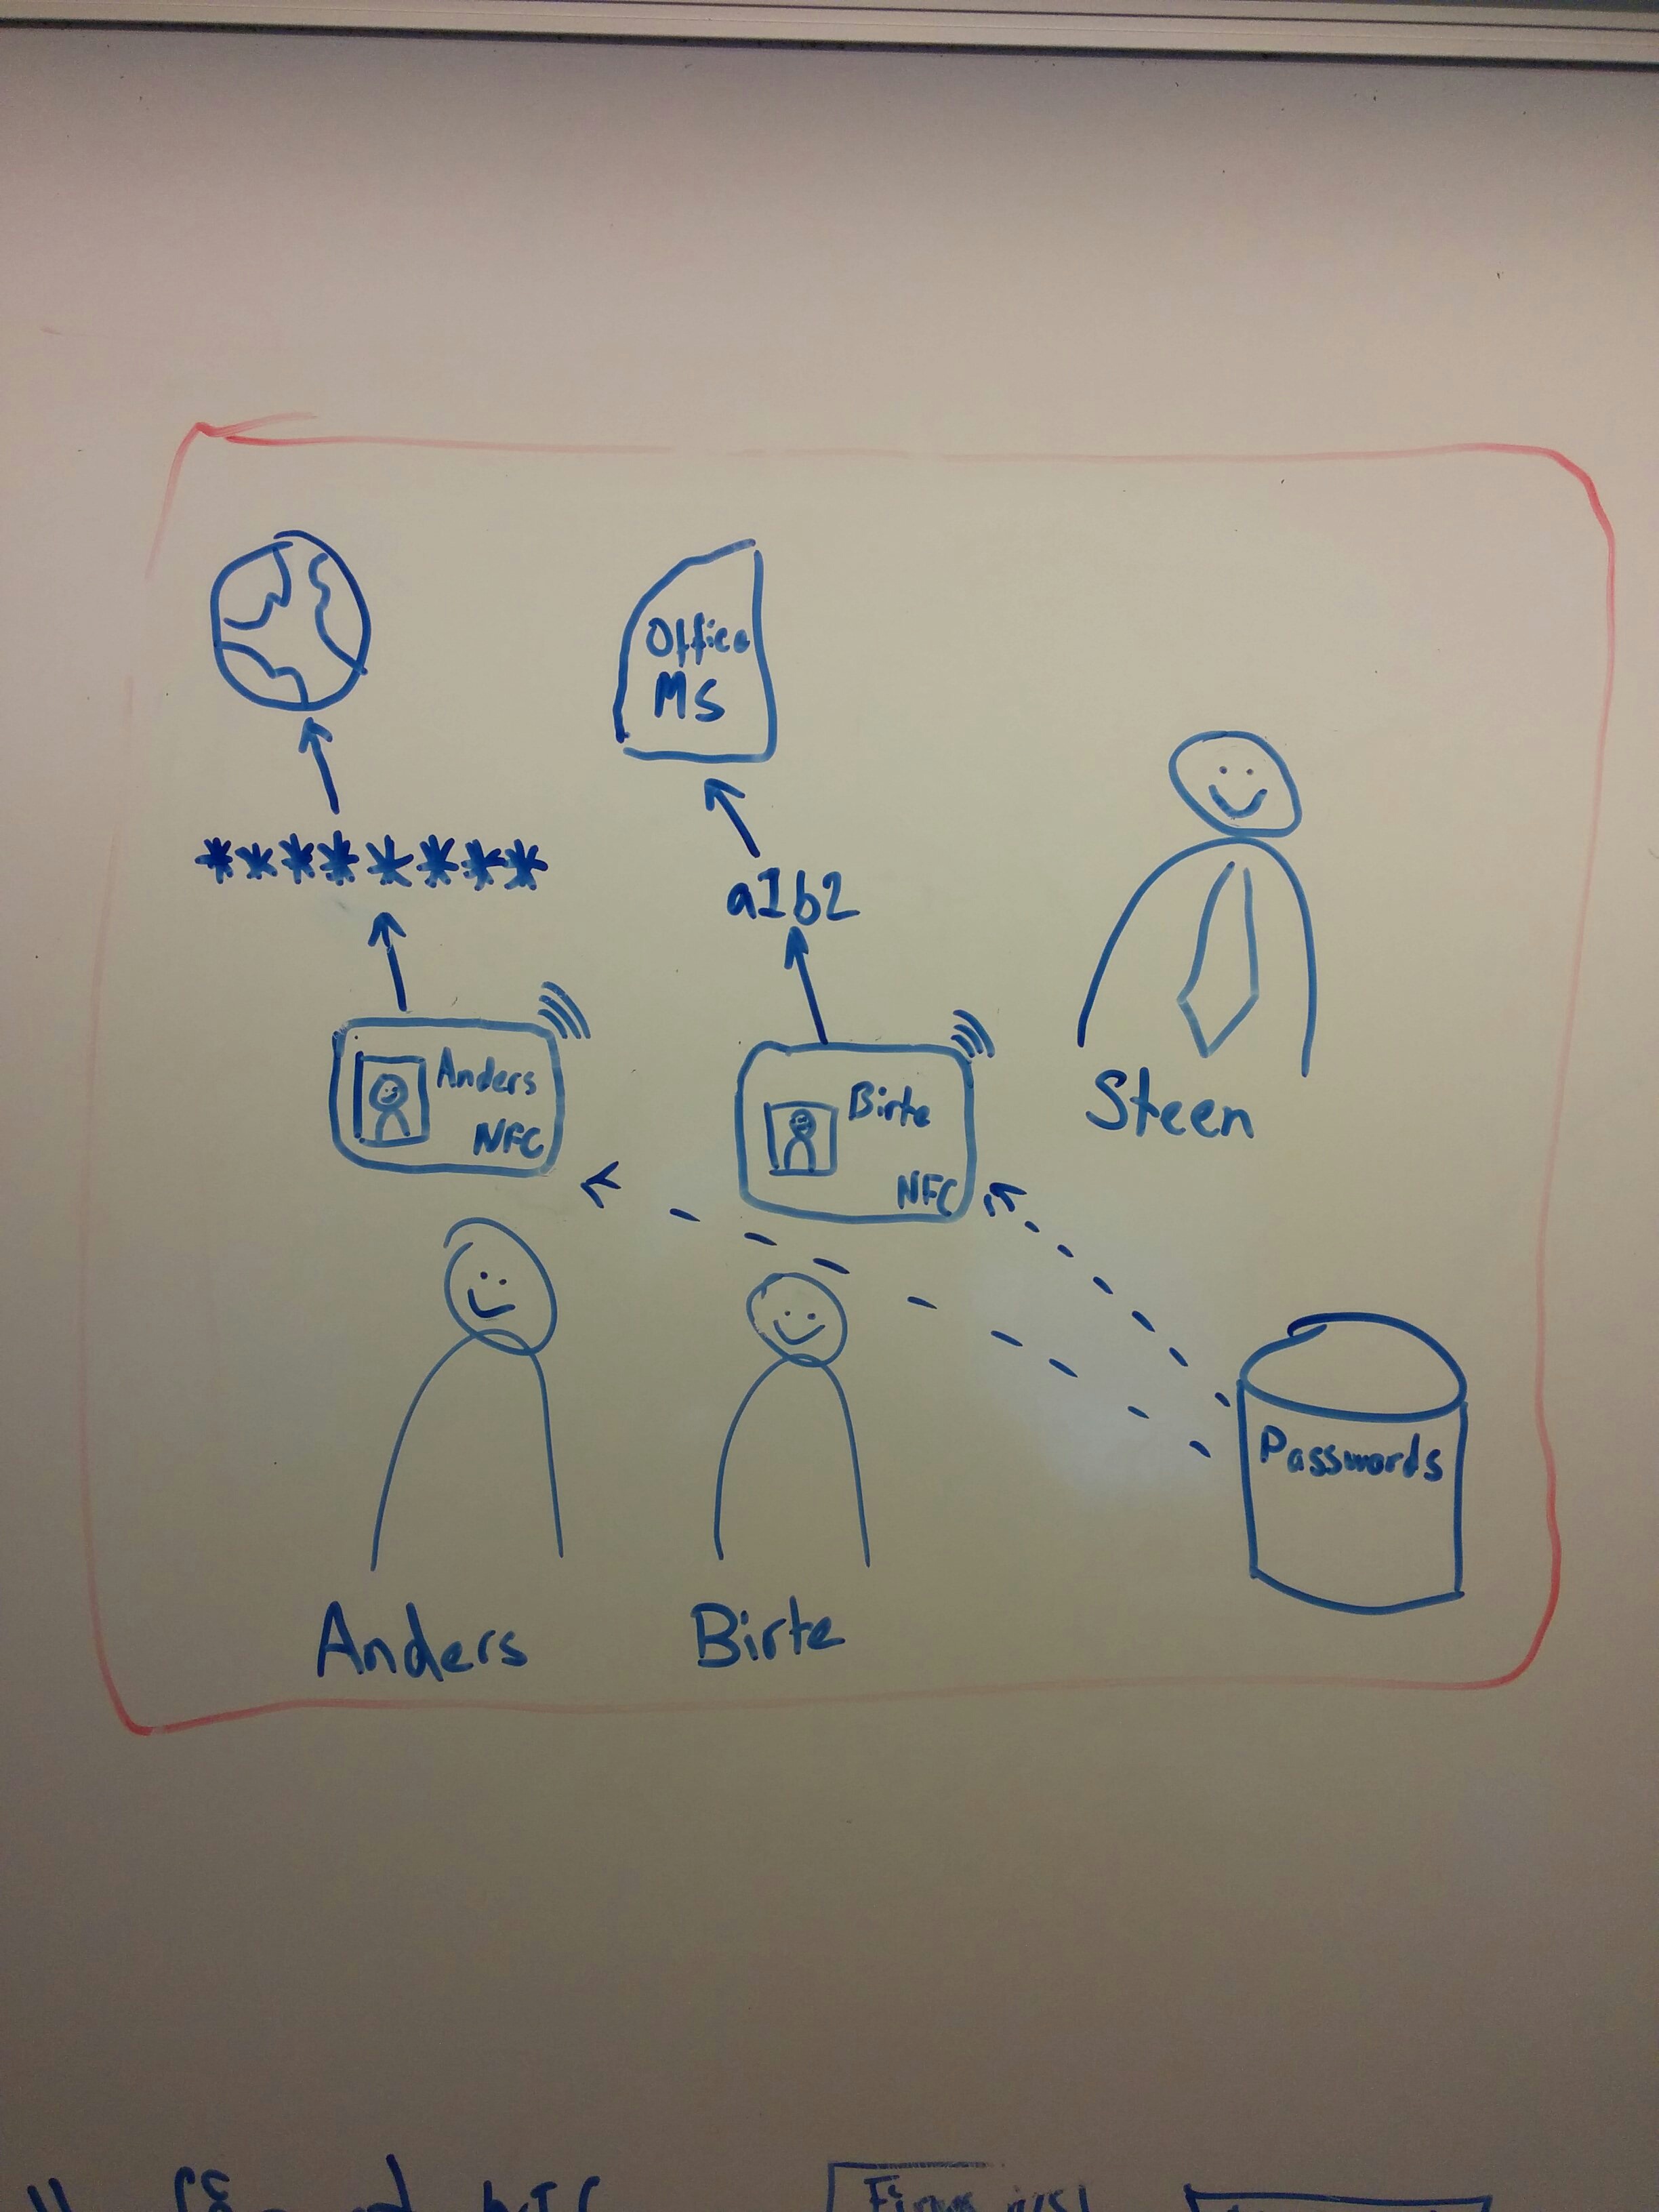 Office
MS
********
a1b2
Anders
NFC
Birte
NFC
Steen
Passwords
Anders
Birte